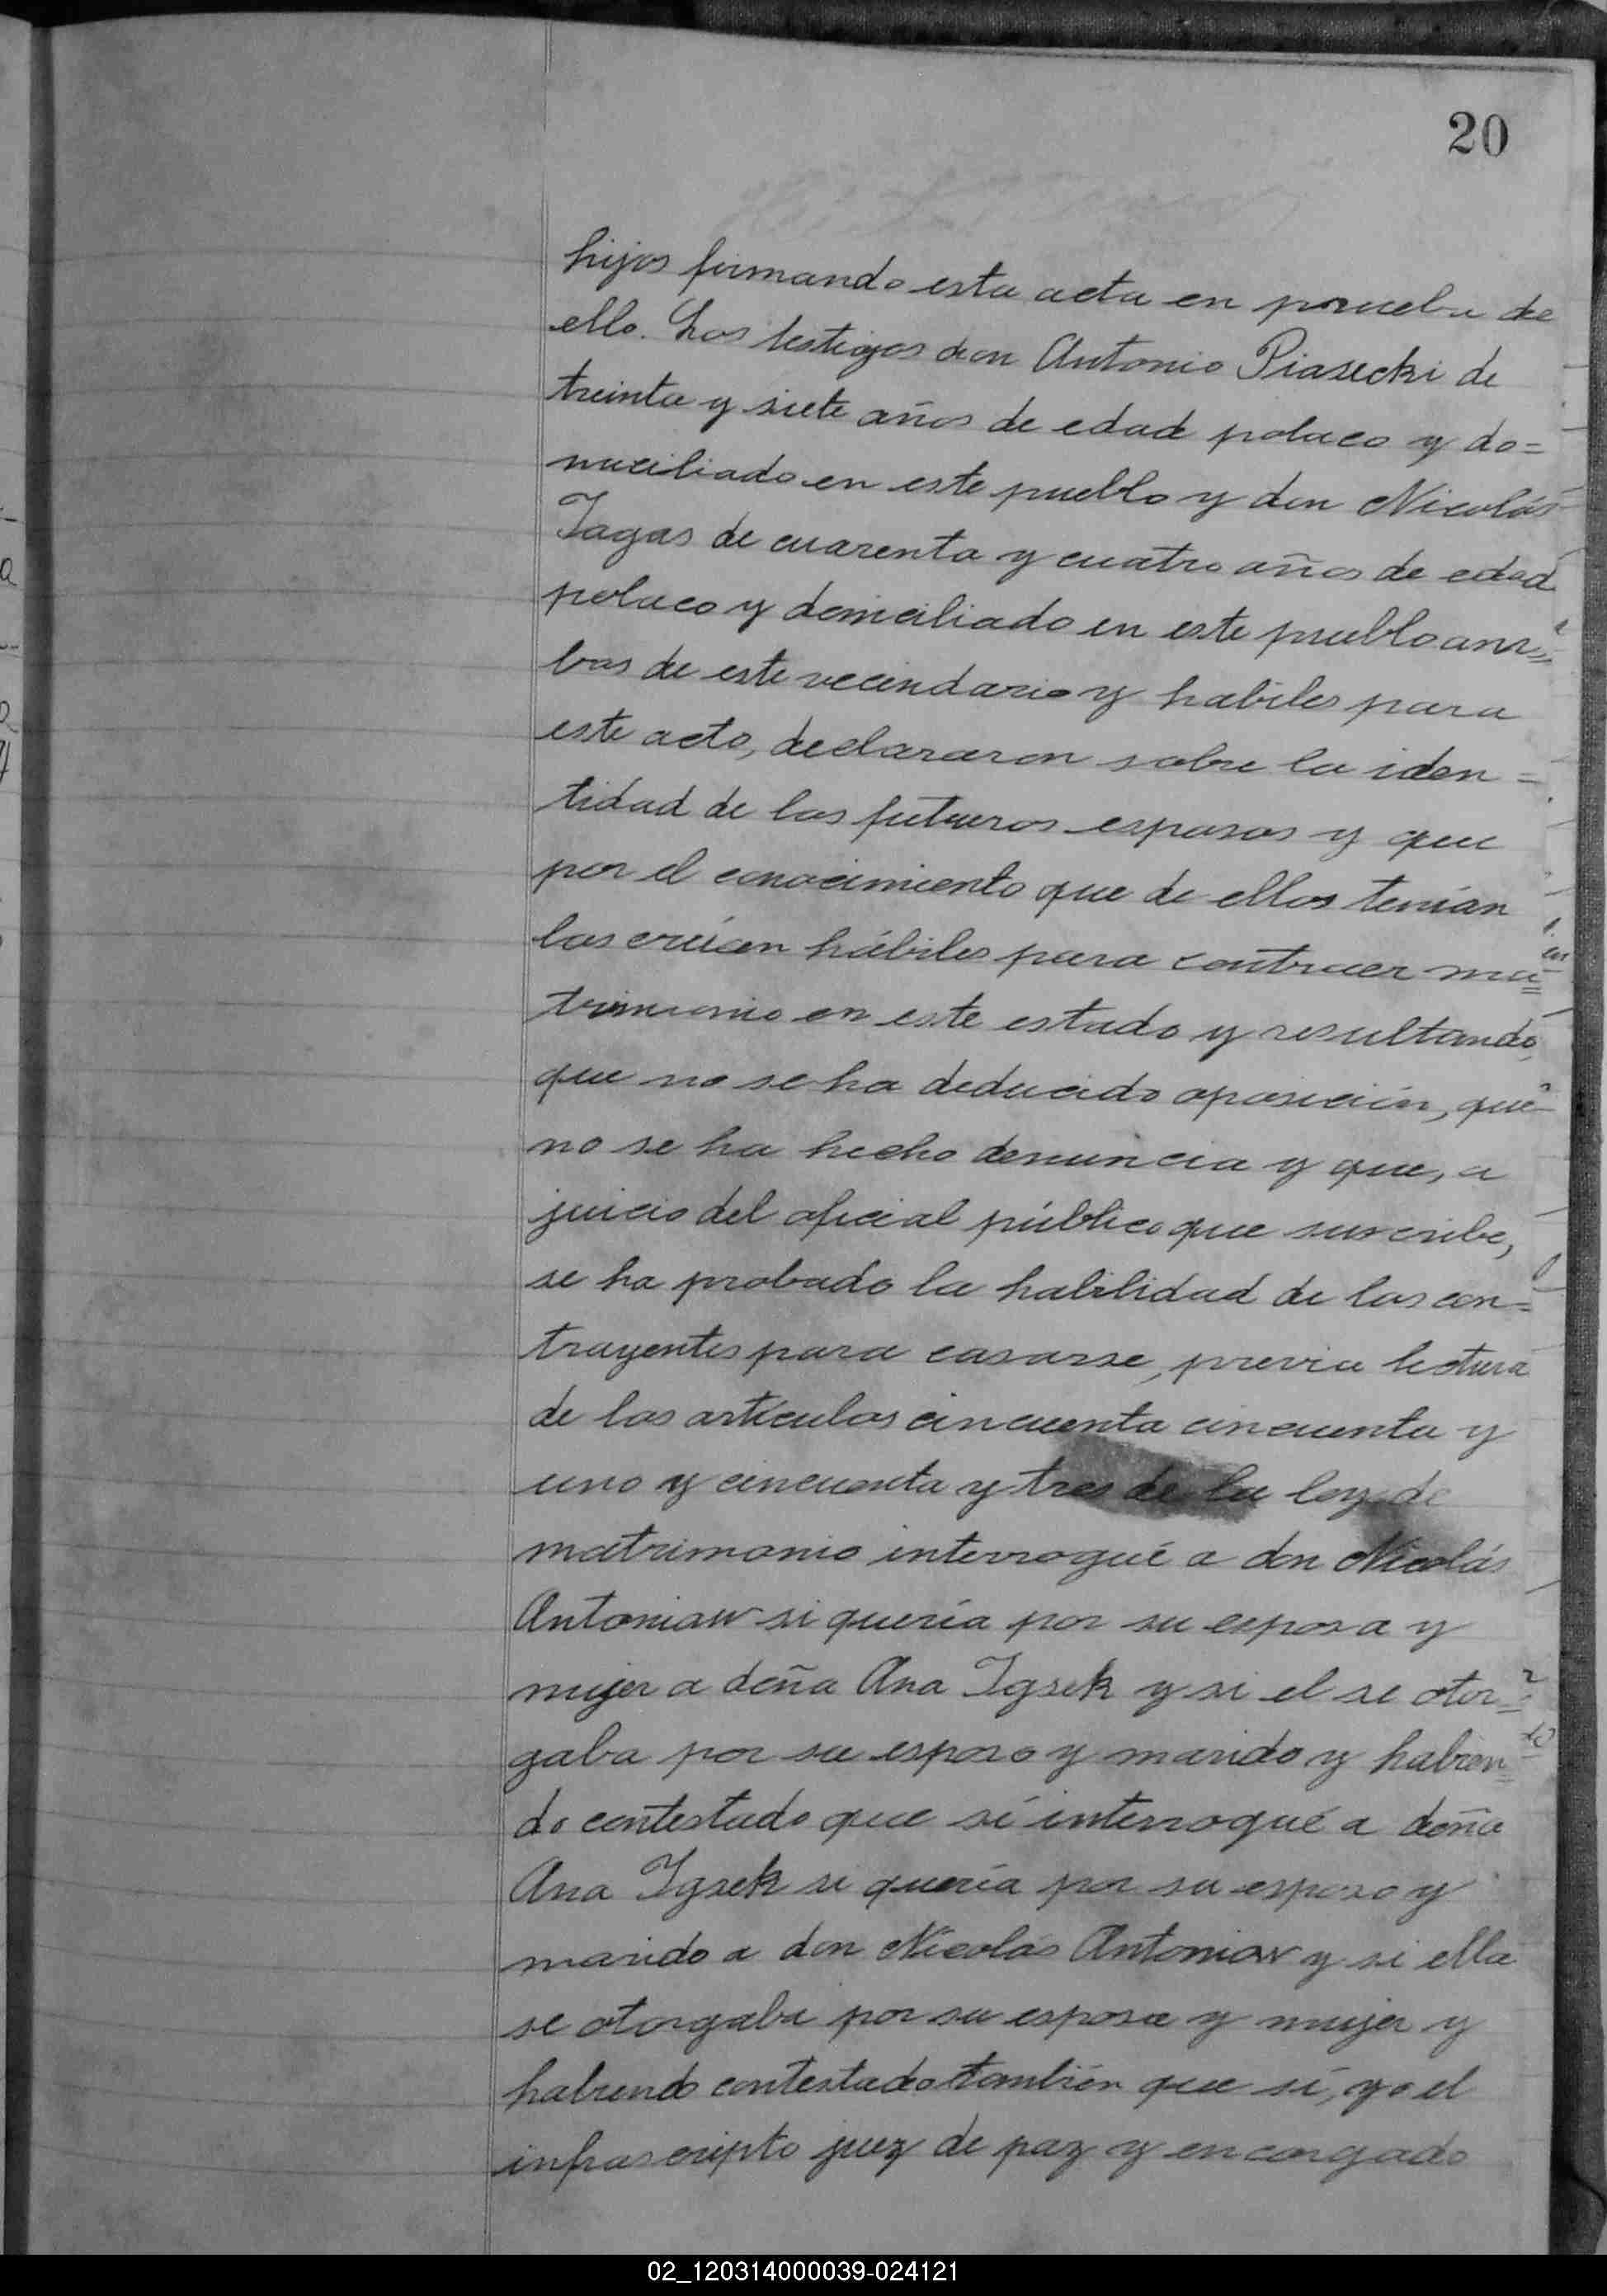 20
hijos firmando esta acta en prueba de
ello. Los testigos don Antonio Piasecki de
treinta y siete años de edad polaco y do=
miciliado en este pueblo y don Nicolás
Jagas de cuarenta y cuatro años de edad
polaco y domiciliado en este pueblo am=
bos de este vecindario y habiles para
este acto, declararon sobre la iden=
tidad de los futuros esposos y que
por el conocimiento que de ellos tenían
los creían hábiles para contraer ma=
trimonio en este estado y resultando
que no se ha deducido oposición, que
no se ha hecho denuncia y que, a
juicio del oficial público que suscribe,
se ha probado la habilidad de los con=
trayentes para casarse, previa lectura
de los artículos cincuenta cincuenta y
uno y cincuenta y tres de la ley de
matrimonio interrogué a don Nicolás
Antoniaw si quería por su esposa y
mujer a doña Ana Igsek y si el se otor=
gaba por su esposo y marido y habien=
do contestado que sí interrogué a doña
Ana Igsek si quería por su esposo y
marido a don Nicolás Antoniaw y si ella
se otorgaba por su esposa y mujer y
habiendo contestado también que sí, yo el
infrascripto juez de paz y encargado
02_120314000039-024121